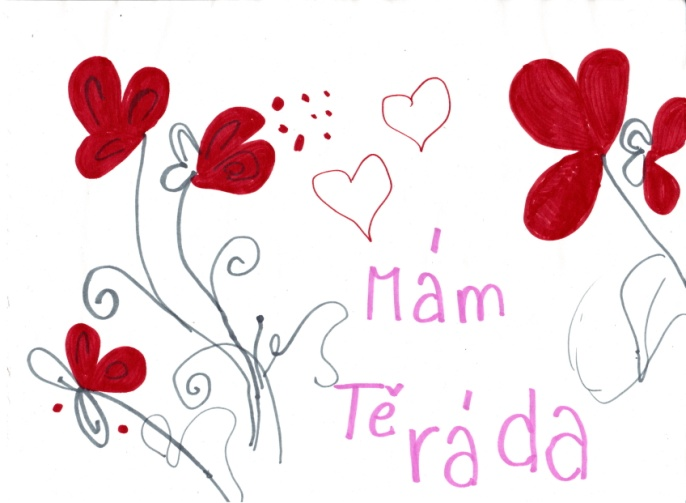 Mám
Tě ráda